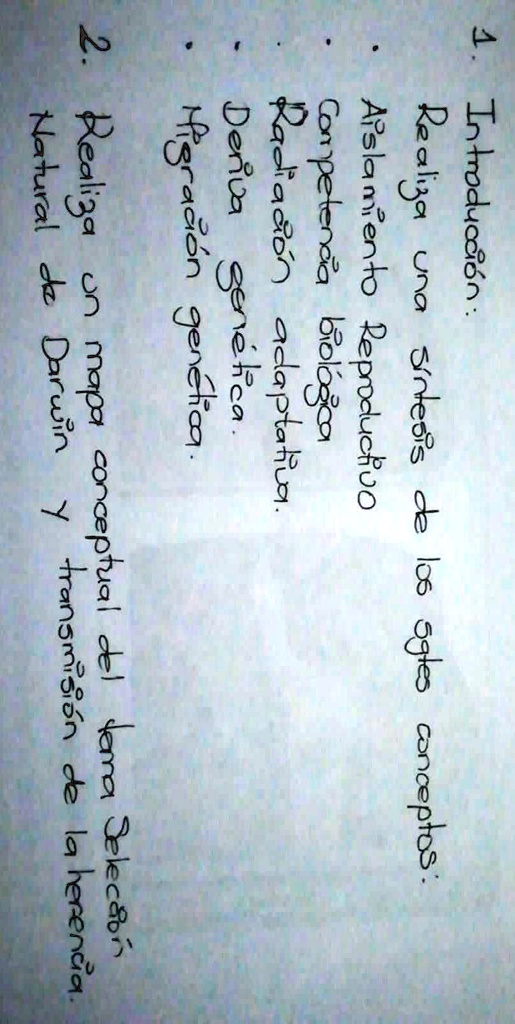 1. Introducción:
Realiza una síntesis de los sgtes conceptos:
• Aislamiento Reproductivo
• Competencia biológica
• Radiación adaptativa.
• Deriva genética.
• Migración genética.
2. Realiza un mapa conceptual del tema Selección
Natural de Darwin y transmisión de la herencia.